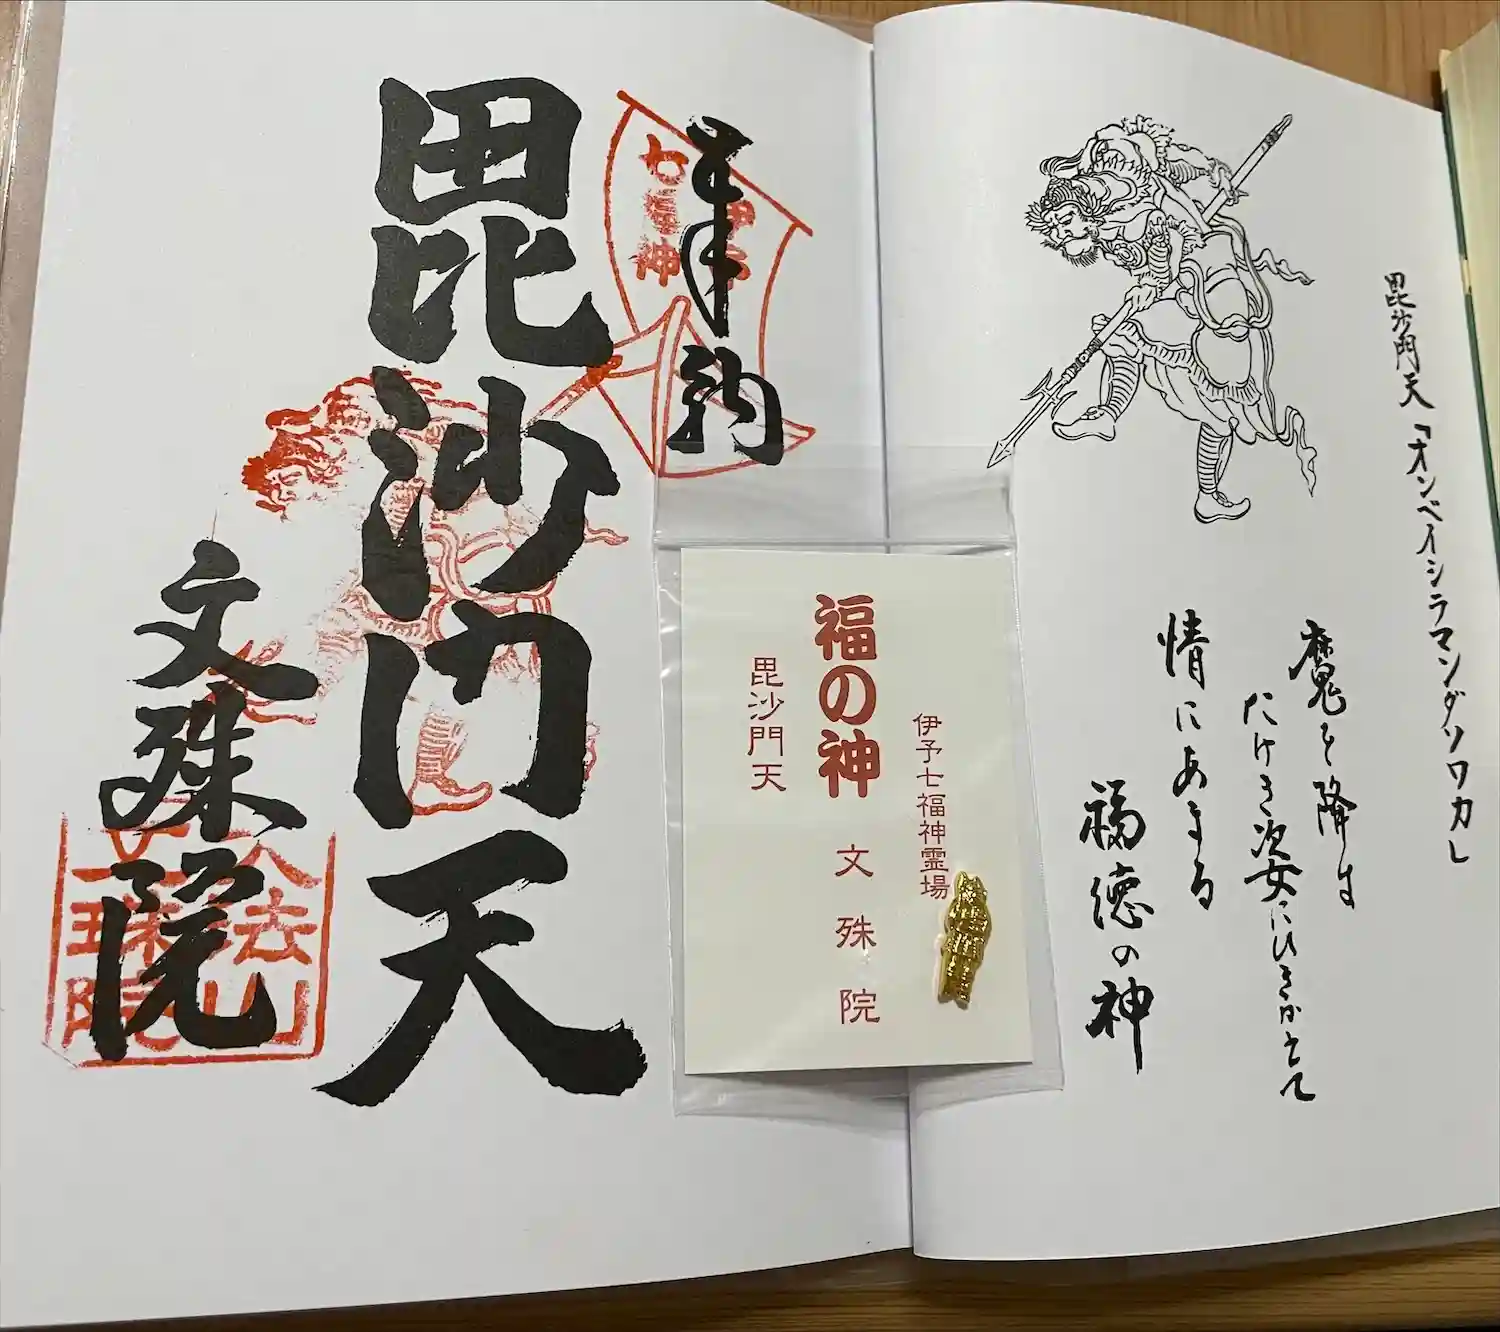 毘沙門天「オンベイシラマンダソワカ」
魔を降す
たけき姿にひきかえて
情にあまる
福徳の神
伊予七福神霊場
文殊院
福の神
毘沙門天
奉納
伊予
七福神
毘沙門天
文殊院
大法山
文殊院